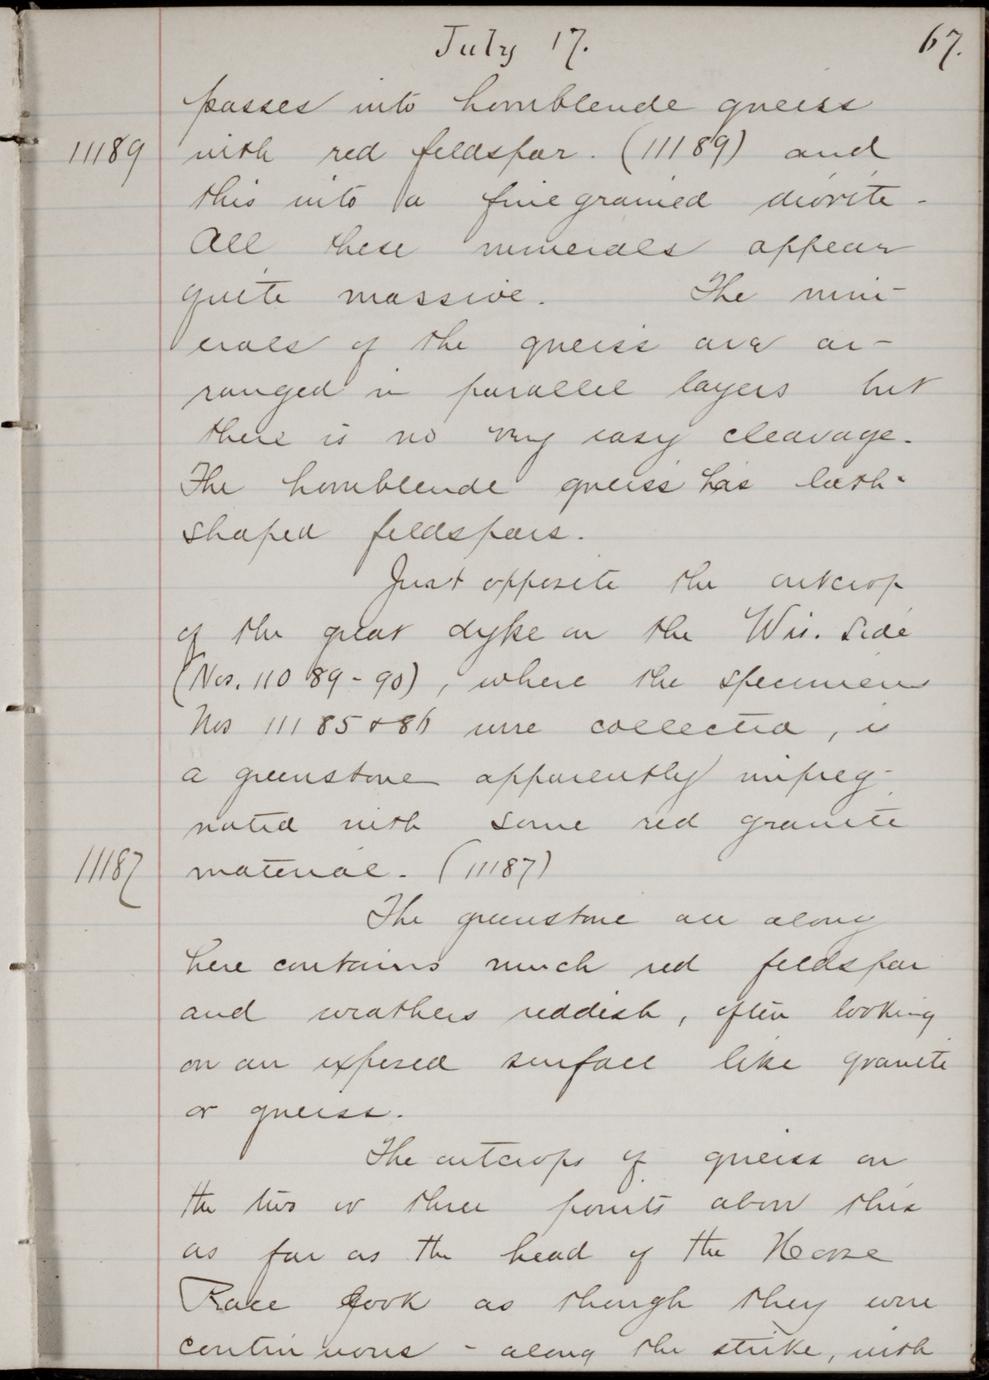 July 17.
67.
passes into hornblende gneiss
11189
with red feldspar. (11189) and
this into a finegrained diorite.
All these minerals appear
quite massive. The min-
erals of the gneiss are ar-
ranged in parallel layers but
there is no very easy cleavage.
The hornblende gneiss has lath-
shaped feldspars.
Just opposite the outcrop
of the great dyke on the Wis. side
(Nos. 11089-90), where the specimens
Nos 11185 & 86 were collected, is
a greenstone apparently impreg-
nated with some red granite
11187
material. (11187)
The greenstone all along
here contains much red feldspar
and weathers reddish, often looking
on an exposed surface like granite
or gneiss.
The outcrops of gneiss on
the two or three points above this
as far as the head of the Horse
Race look as though they were
continuous - along the strike, with